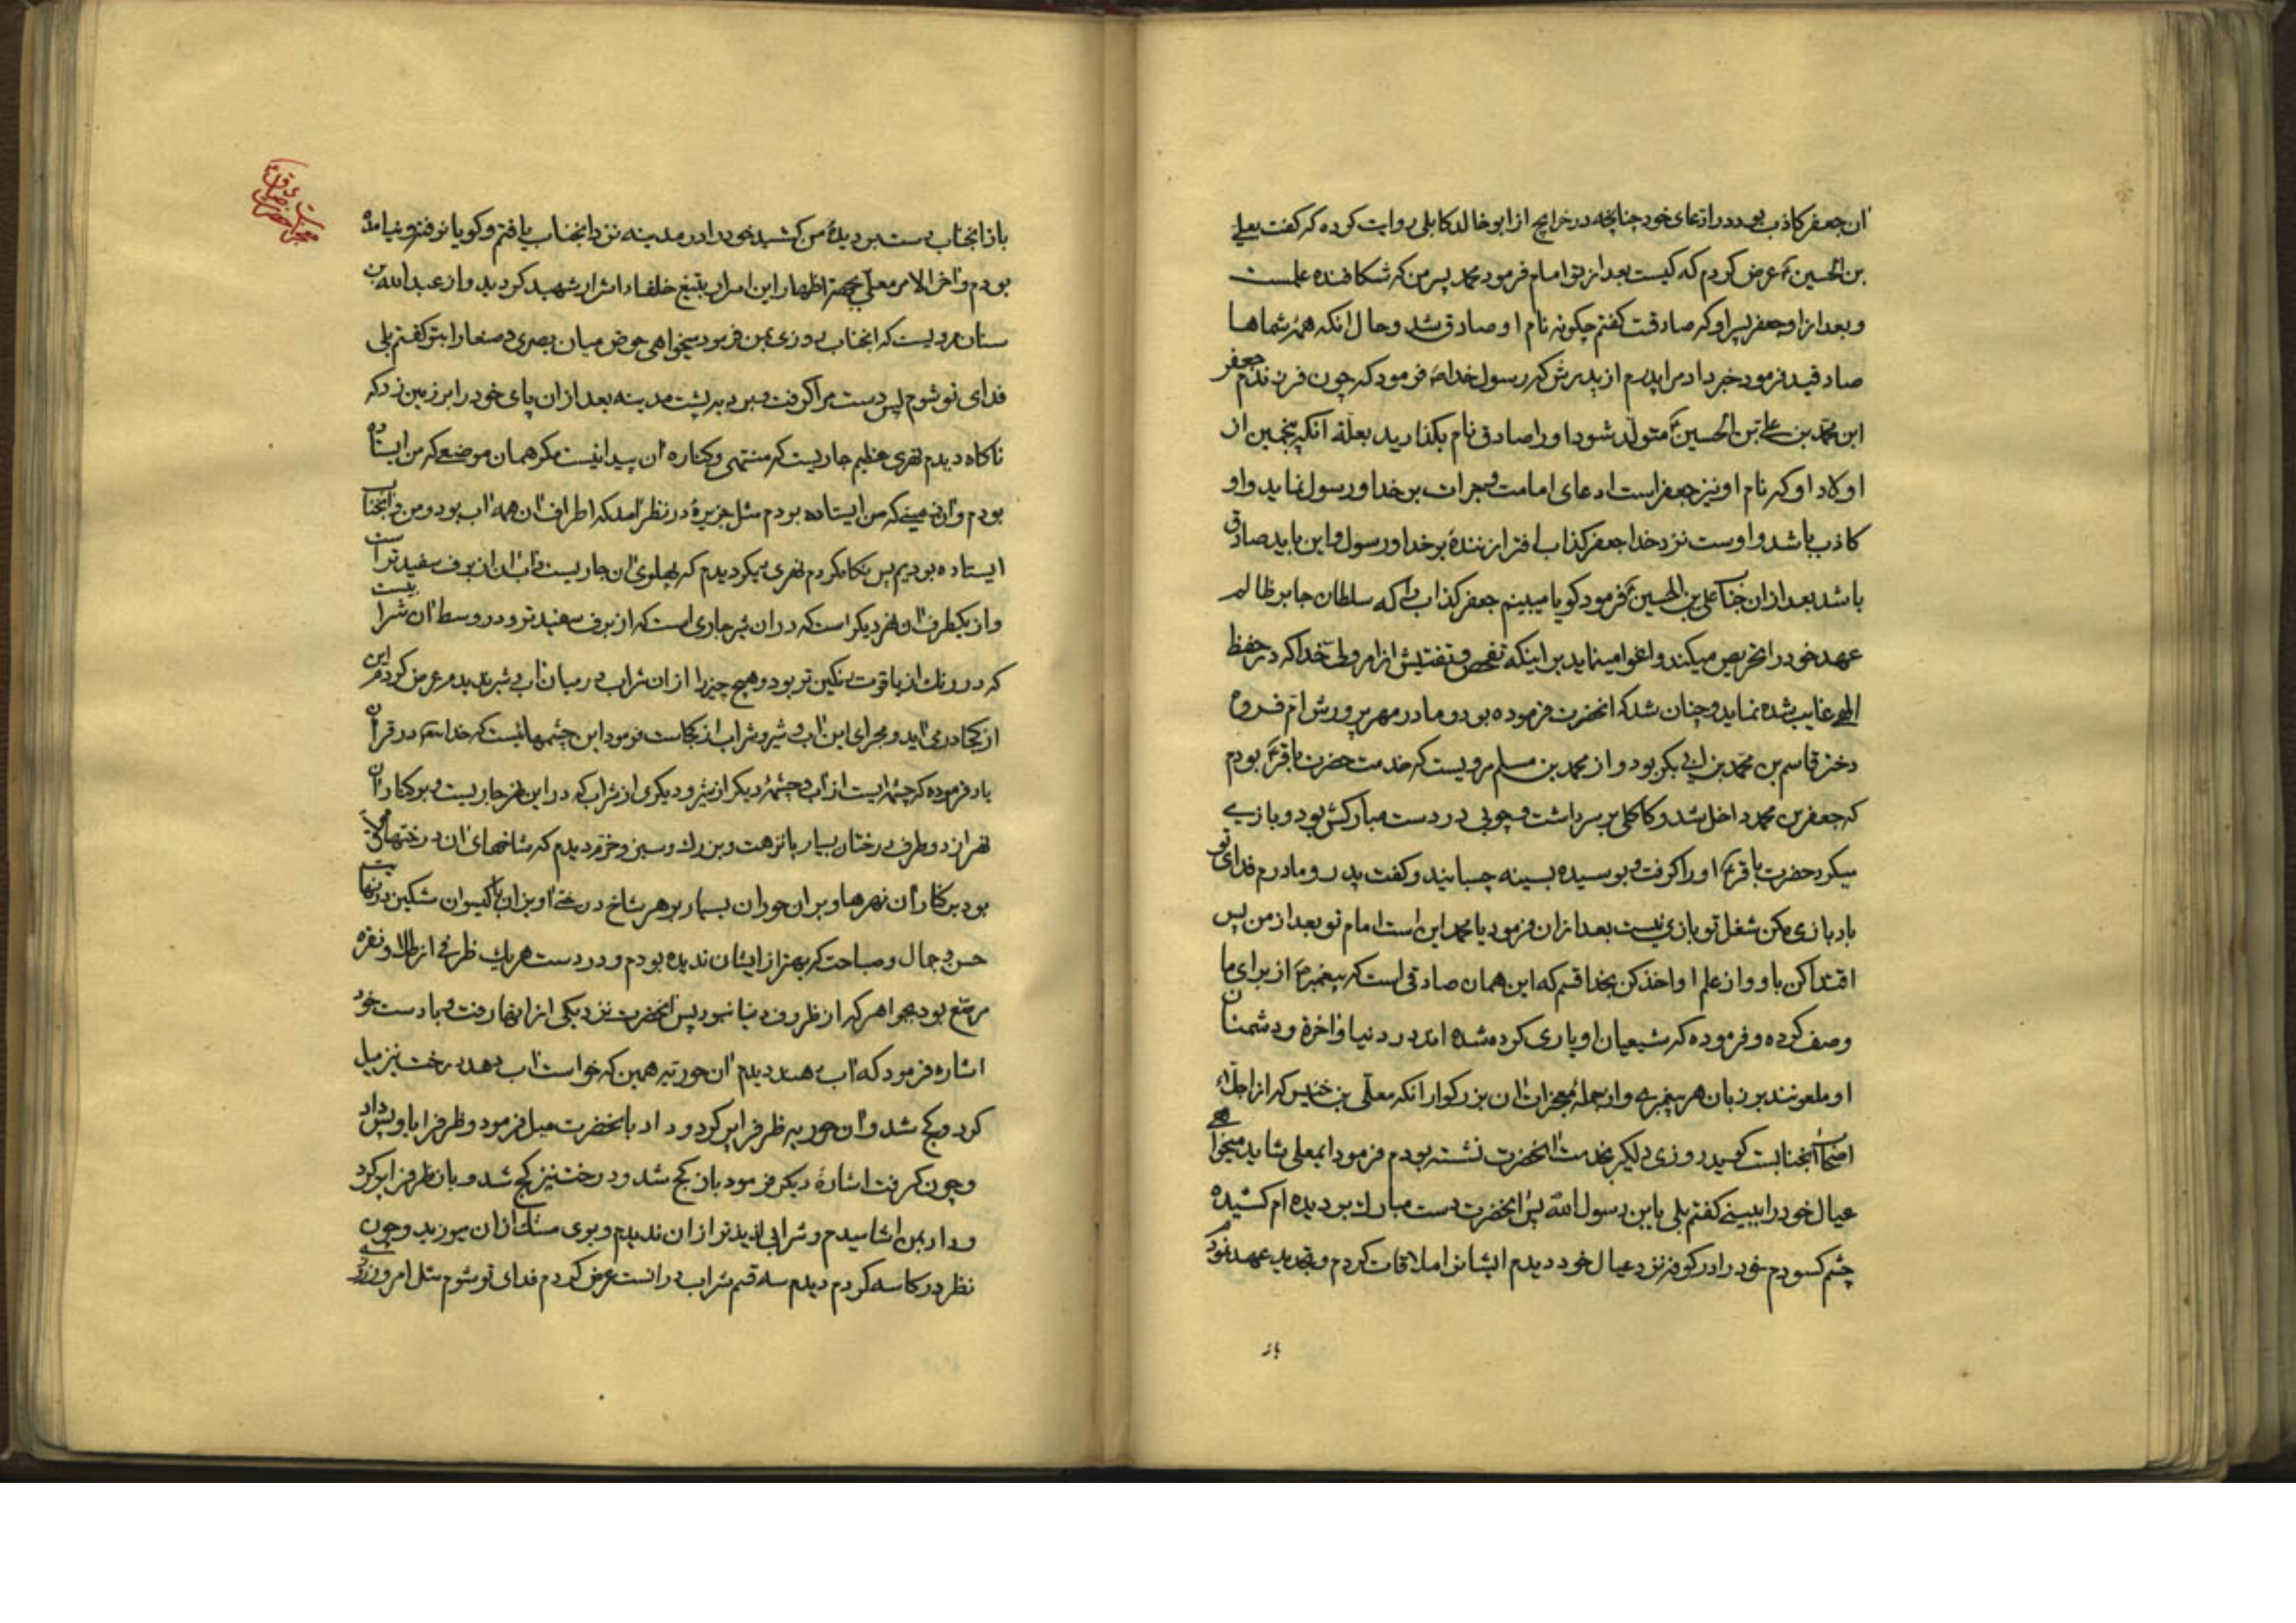 آن جعفر کاذب بود در ادعای خود چنانچه در خرایج از ابو خالد کابلی روایت کرده که گفت بعلی
بن الحسین ع عرض کردم که کیست بعد از تو امام فرمود محمد پسر من که شکافنده علمست
و بعد از او جعفر پسر او که صادقست گفتم چگونه نام او صادق شد و حال آنکه همه شماها
صادقید فرمود خبر داد مرا پدرم از پدرش که رسول خدا ص فرمود که چون فرزندم جعفر
ابن محمد بن علی بن الحسین ع متولد شود او را صادق نام بگذارید بعلة آنکه پنجمین از
اولاد او که نام او نیز جعفر است ادعای امامت و جرات بر خدا و رسول نماید و او
کاذب باشد و اوست نزد خدا جعفر کذاب افتراء زنندۀ بر خدا و رسول و این باید صادق
باشد بعد از آن جناب علی بن الحسین ع فرمود گویا میبینم جعفر کذاب را که سلطان جابر ظالم
عهد خود را تحریص میکند و اغوا مینماید بر اینکه تفحص و تفتیش از امر ولی خدا که در حفظ
الهی غایب شده نماید و چنان شد که انحضرت فرموده بود و مادر مهرپرورش ام فروه
دختر قاسم بن محمد بن ابی بکر بود و از محمد بن مسلم مرویست که خدمت حضرت باقر ع بودم
که جعفر بن محمد داخل شد و کاکلی بر سر داشت و چوبی در دست مبارکش بود و بازی
میکرد حضرت باقر ع او را گرفت و بوسیده بسینه چسبانید و گفت پدر و مادرم فدای تو
باد بازی مکن شغل تو بازی نیست بعد از آن فرمود یا محمد این است امام تو بعد از من پس
اقتدا کن باو و از علم او اخذ کن بخدا قسم که این همان صادقی است که پیغمبر ص از برای ما
وصف کرده و فرموده که شیعیان او یاری کرده شده اند در دنیا و آخرة و دشمنان
او ملعونند بر زبان هر پیغمبری و از جمله معجزات آن بزرگوار آنکه معلی بن خنیس که از اجلاء
اصحاب آنجنابست گوید روزی دلگیر بخدمت انحضرت نشسته بودم فرمود ایمعلی شاید میخواهی
عیال خود را ببینی گفتم بلی یابن رسول الله پس انحضرت دست مبارک بر دیده ام کشیده
چشم گشودم خود را در کوفه نزد عیال خود دیدم ایشانرا ملاقات کردم و تجدید عهد نمودم
باز انجناب دست بر دیدۀ من کشید خود را در مدینه نزد انجناب یافتم و گویا نرفته و نیامده
بودم و آخر الامر معلی بجهة اظهار این اسرار بتیغ خلفاء اشرار شهید گردید و از عبدالله بن
سنان مرویست که انجناب روزی بمن فرمود میخواهی حوض میان بصری و صنعا را بتو گفتم بلی
فدای تو شوم پس دست مرا گرفت و برد به پشت مدینه بعد از آن پای خود را بر زمین زد که
ناگاه دیدم نهری عظیم جاریست که منتهی و کناره آن پیدا نیست مگر همان موضعی که من ایستاده
بودم و آن زمینی که من ایستاده بودم مثل جزیرۀ در نظر آمد که اطراف آن همه آب بود و من و آنجناب
ایستاده بودیم پس نگاه کردم نهری دیگر دیدم که بپهلوی آن جاریست و آب آن از برف سفیدتر است
و از یکطرف او نهر دیگر است که در آن شیر جاری است که از برف سفیدتر و در وسط آن شرابیست
که در رنگ از یاقوت رنگین تر بود و هیچ چیز را از آن شراب در میان آب و شیر ندیدم عرض کردم این
از کجا در می آید و مجرای این آب و شیر و شراب از کجاست فرمود این چشمهائیست که خدا در قرآن
یاد فرموده که چشمه ایست از آب و چشمۀ دیگر از شیر و دیگری از شراب که در این نهر جاریست و بر کنار آن
نهر از دو طرف درختان بسیار با نزهت و بزرگ و سبز و خرم دیدم که شاخهای آن درختها
بود بر کنار آن نهرها و بر آن حوران بسیار بر هر شاخ درختی آویزان با گیسوان مشکین در نهایت
حسن و جمال و صباحت که بهتر از ایشان ندیده بودم و در دست هر یک ظرفی از طلا و نقره
مرصع بود بجواهر که از ظروف دنیا نبود پس انحضرت نزد یکی از آنها رفت و با دست خود
اشاره فرمود که آب بدهند دیدم آن حوریه همین که خواست آب دهد درخت نیز میل
کرد و کج شد و آن حوریه ظرف را پر کرد و داد بانحضرت میل فرمود و ظرف را باو پس داد
و چون گرفت اشارۀ دیگر فرمود باز کج شد و درخت نیز کج شد و باز ظرف را پر کرد
و داد بمن اشامیدم و شرابی لذیذتر از آن ندیدم و بوی مشک از آن میوزید و چون
نظر در کاسه کردم دیدم سه قسم شراب در آنست عرض کردم فدای تو شوم مثل امروز روزی